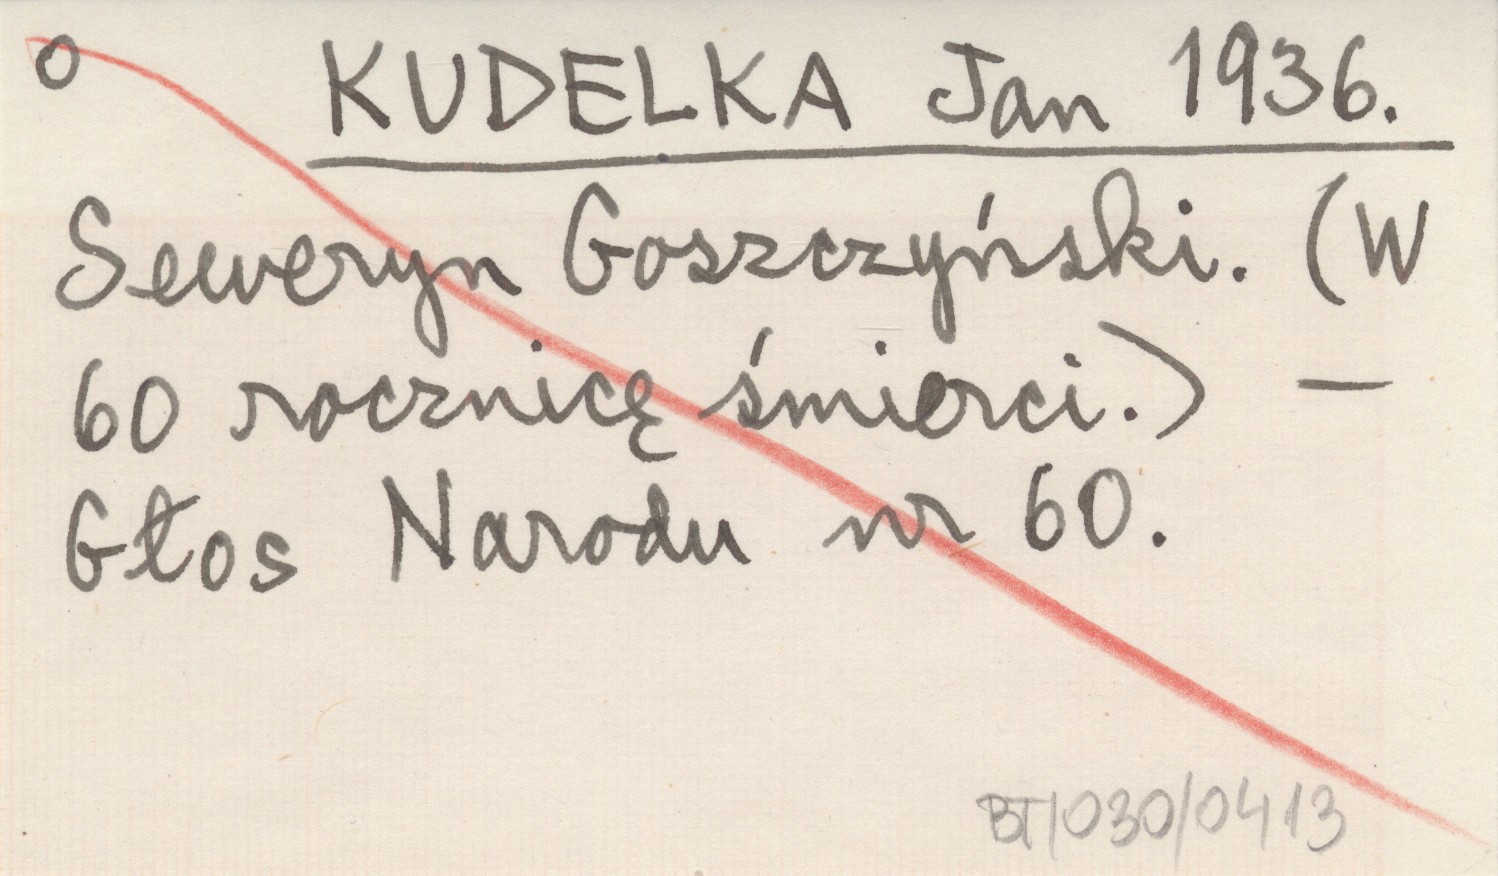 o KUDELKA Jan 1936.
Seweryn Goszczyński. (W
60 rocznicę śmierci.) —
Głos Narodu nr 60.
BT/030/0413